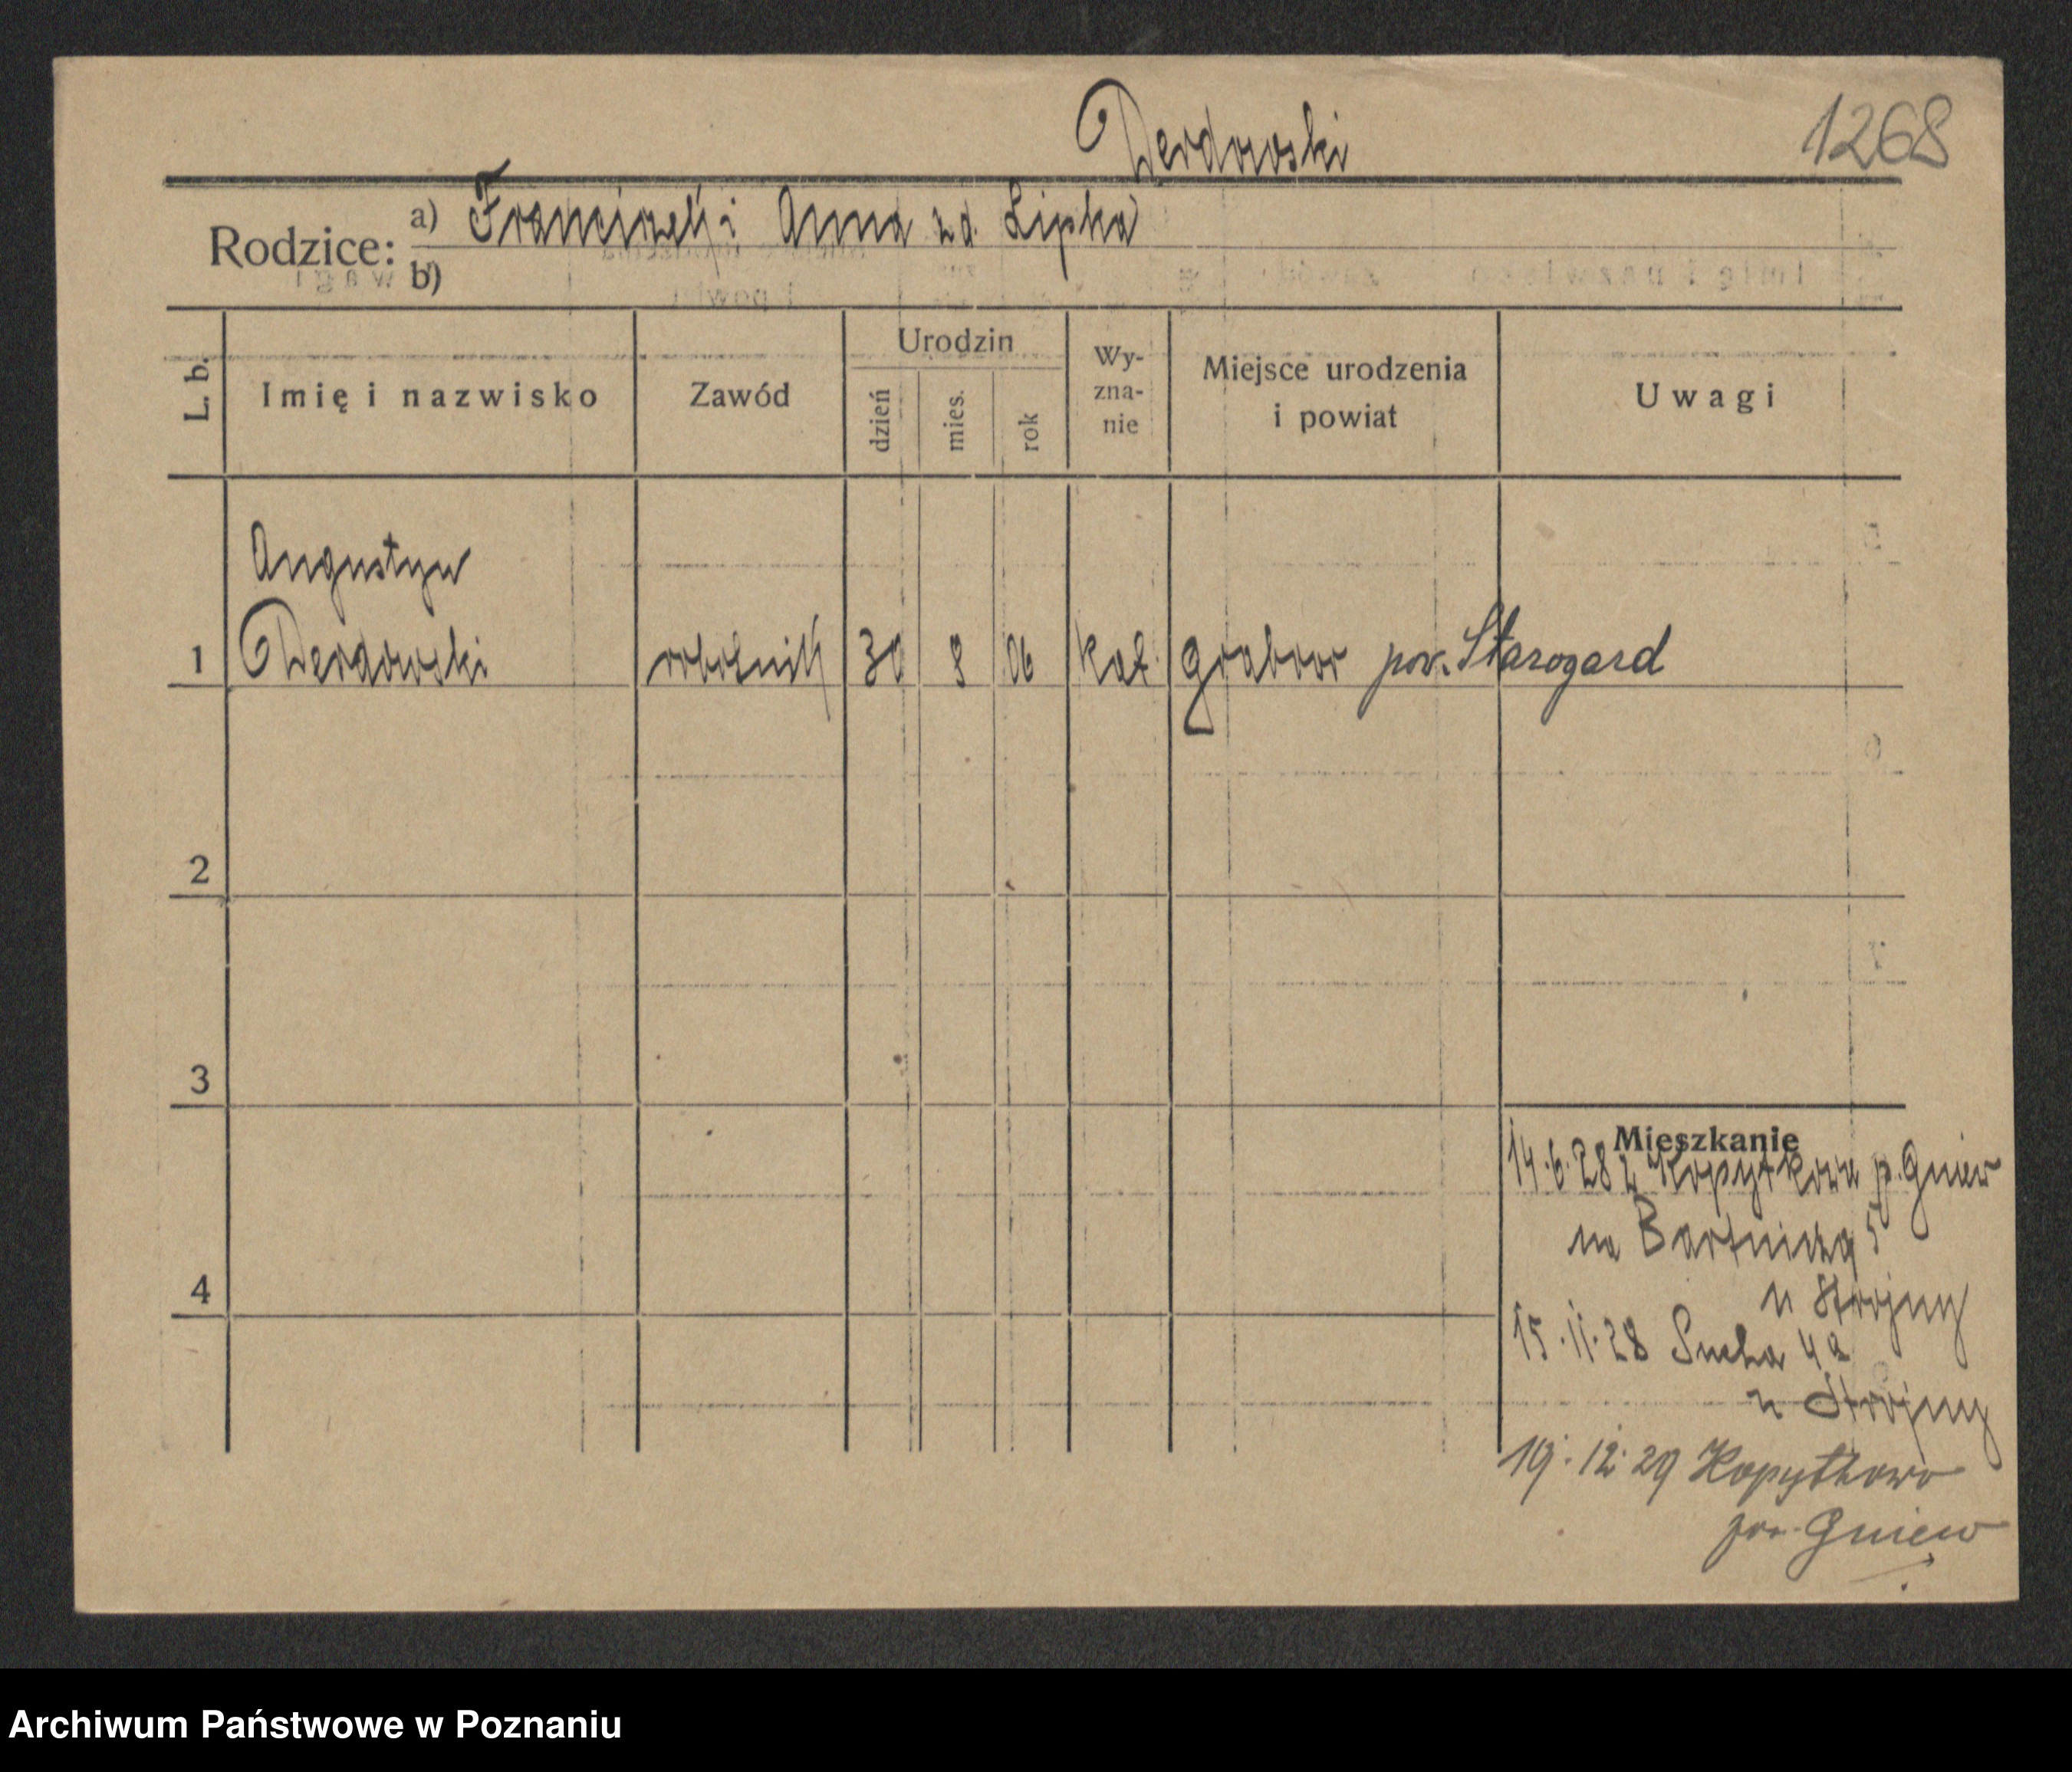 Derdowski
1268
Rodzice: a) Franciszek i Anna zd. Lipka
b)
L. b.
Imię i nazwisko
Zawód
Urodzin
dzień
mies.
rok
Wy-
zna-
nie
Miejsce urodzenia
i powiat
Uwagi
Augustyn
1 Derdowski robotnik 30 8 06 kat. Grabow pow. Starogard
2
3
4
Mieszkanie
14.6.28 z Kopytkowa p. Gniew
na Bartnicza 5
u Strojny
15.11.28 Sucha 4a
u Strojny
19.12.29 Kopytkowo
pow. Gniew
Archiwum Państwowe w Poznaniu